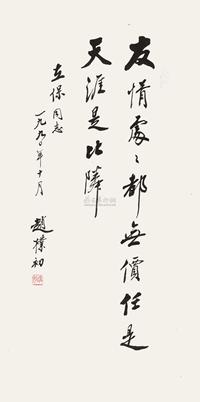 友情處〻都無價任是
天涯是比隣
立保同志
一九九〇年十月
趙樸初